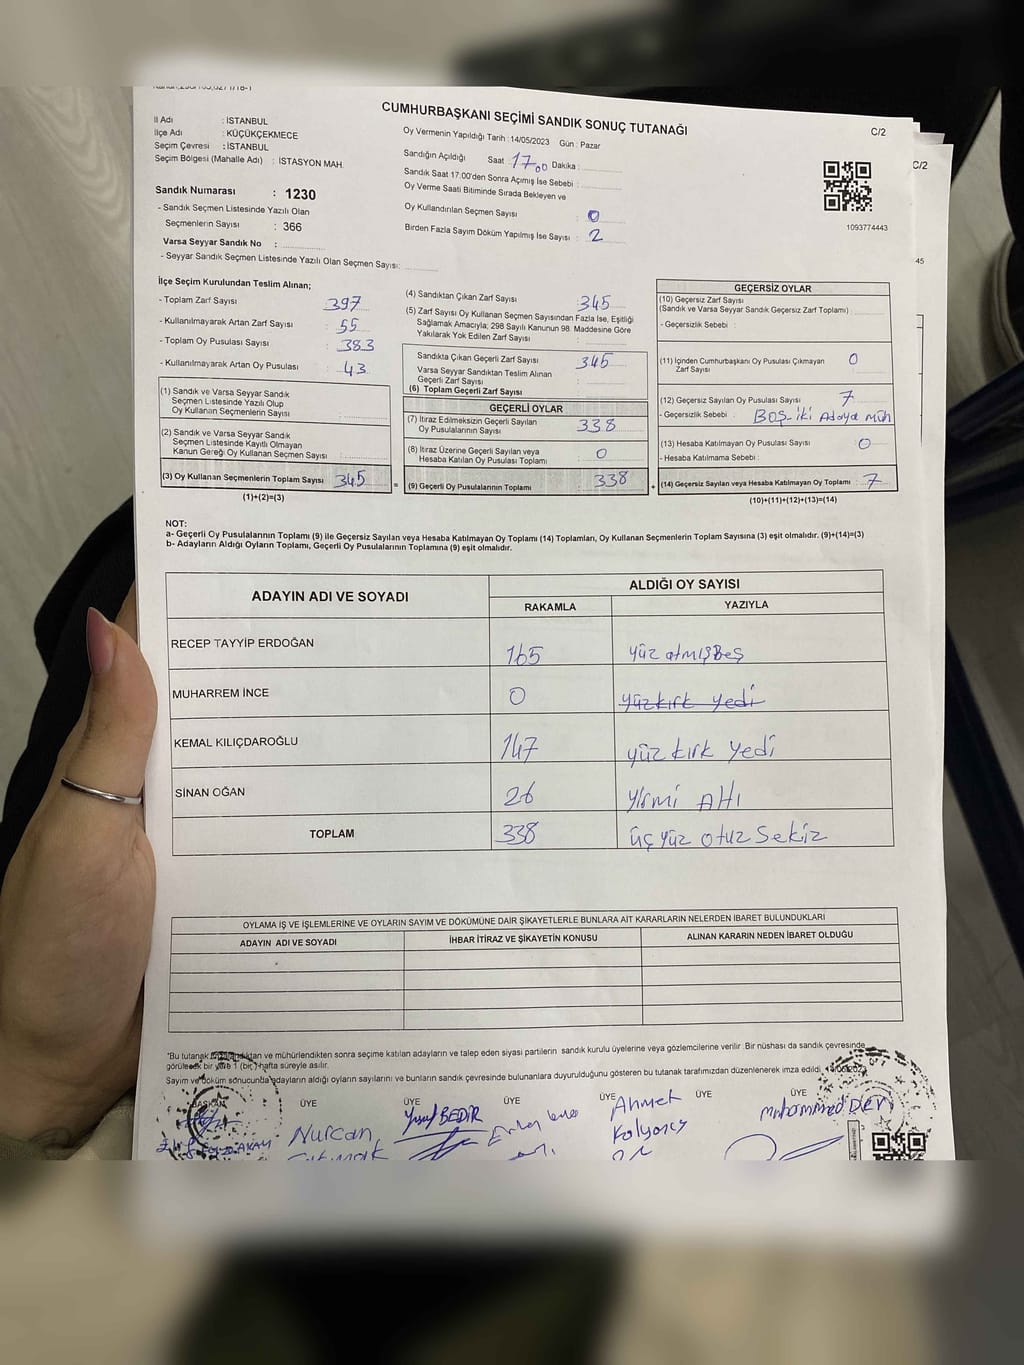 CUMHURBAŞKANI SEÇİMİ SANDIK SONUÇ TUTANAĞI
C/2
C/2
İl Adı : İSTANBUL
İlçe Adı : KÜÇÜKÇEKMECE
Seçim Çevresi : İSTANBUL
Seçim Bölgesi (Mahalle Adı) : İSTASYON MAH.
Sandık Numarası : 1230
- Sandık Seçmen Listesinde Yazılı Olan
Seçmenlerin Sayısı : 366
Varsa Seyyar Sandık No :
- Seyyar Sandık Seçmen Listesinde Yazılı Olan Seçmen Sayısı:
Oy Vermenin Yapıldığı Tarih : 14/05/2023 Gün : Pazar
Sandığın Açıldığı Saat 17 00 Dakika :
Sandık Saat 17:00'den Sonra Açımış İse Sebebi :
Oy Verme Saati Bitiminde Sırada Bekleyen ve
Oy Kullandırılan Seçmen Sayısı : 0
Birden Fazla Sayım Döküm Yapılmış İse Sayısı : 2
1093774443
45
İlçe Seçim Kurulundan Teslim Alınan;
- Toplam Zarf Sayısı : 397
- Kullanılmayarak Artan Zarf Sayısı : 55
- Toplam Oy Pusulası Sayısı : 383
- Kullanılmayarak Artan Oy Pusulası : 43
(1) Sandık ve Varsa Seyyar Sandık
Seçmen Listesinde Yazılı Olup
Oy Kullanan Seçmenlerin Sayısı :
(2) Sandık ve Varsa Seyyar Sandık
Seçmen Listesinde Kayıtlı Olmayan
Kanun Gereği Oy Kullanan Seçmen Sayısı :
(3) Oy Kullanan Seçmenlerin Toplam Sayısı : 345
(1)+(2)=(3)
=
(4) Sandıktan Çıkan Zarf Sayısı : 345
(5) Zarf Sayısı Oy Kullanan Seçmen Sayısından Fazla İse, Eşitliği
Sağlamak Amacıyla; 298 Sayılı Kanunun 98. Maddesine Göre
Yakılarak Yok Edilen Zarf Sayısı :
Sandıkta Çıkan Geçerli Zarf Sayısı : 345
Varsa Seyyar Sandıktan Teslim Alınan
Geçerli Zarf Sayısı :
(6) Toplam Geçerli Zarf Sayısı
GEÇERLİ OYLAR
(7) İtiraz Edilmeksizin Geçerli Sayılan
Oy Pusulalarının Sayısı : 338
(8) İtiraz Üzerine Geçerli Sayılan veya
Hesaba Katılan Oy Pusulası Toplamı : 0
(9) Geçerli Oy Pusulalarının Toplamı : 338
+
GEÇERSİZ OYLAR
(10) Geçersiz Zarf Sayısı
(Sandık ve Varsa Seyyar Sandık Geçersiz Zarf Toplamı) :
- Geçersizlik Sebebi :
(11) İçinden Cumhurbaşkanı Oy Pusulası Çıkmayan
Zarf Sayısı : 0
(12) Geçersiz Sayılan Oy Pusulası Sayısı : 7
- Geçersizlik Sebebi : BOŞ-iki Adaya müh
(13) Hesaba Katılmayan Oy Pusulası Sayısı : 0
- Hesaba Katılmama Sebebi :
(14) Geçersiz Sayılan veya Hesaba Katılmayan Oy Toplamı : 7
(10)+(11)+(12)+(13)=(14)
NOT:
a- Geçerli Oy Pusulalarının Toplamı (9) ile Geçersiz Sayılan veya Hesaba Katılmayan Oy Toplamı (14) Toplamları, Oy Kullanan Seçmenlerin Toplam Sayısına (3) eşit olmalıdır. (9)+(14)=(3)
b- Adayların Aldığı Oyların Toplamı, Geçerli Oy Pusulalarının Toplamına (9) eşit olmalıdır.
ADAYIN ADI VE SOYADI
ALDIĞI OY SAYISI
RAKAMLA YAZIYLA
RECEP TAYYİP ERDOĞAN 165 yüz atmışBeş
MUHARREM İNCE 0 yüzkırk yedi
KEMAL KILIÇDAROĞLU 147 yüz kırk yedi
SİNAN OĞAN 26 yirmi Altı
TOPLAM 338 üç yüz otuz sekiz
OYLAMA İŞ VE İŞLEMLERİNE VE OYLARIN SAYIM VE DÖKÜMÜNE DAİR ŞİKAYETLERLE BUNLARA AİT KARARLARIN NELERDEN İBARET BULUNDUKLARI
ADAYIN ADI VE SOYADI İHBAR İTİRAZ VE ŞİKAYETİN KONUSU ALINAN KARARIN NEDEN İBARET OLDUĞU
*Bu tutanak ve mühürlendikten sonra seçime katılan adayların ve talep eden siyasi partilerin sandık kurulu üyelerine veya gözlemcilerine verilir. Bir nüshası da sandık çevresinde
görülecek bir yere 1 (bir) hafta süreyle asılır.
Sayım ve döküm sonucunda adayların aldığı oyların sayılarını ve bunların sandık çevresinde bulunanlara duyurulduğunu gösteren bu tutanak tarafımızdan düzenlenerek imza edildi.
BAŞKAN ÜYE ÜYE ÜYE ÜYE ÜYE ÜYE
Nurcan
Yusuf BEDİR
Ahmet
Kolyoncu
muhammed Dev